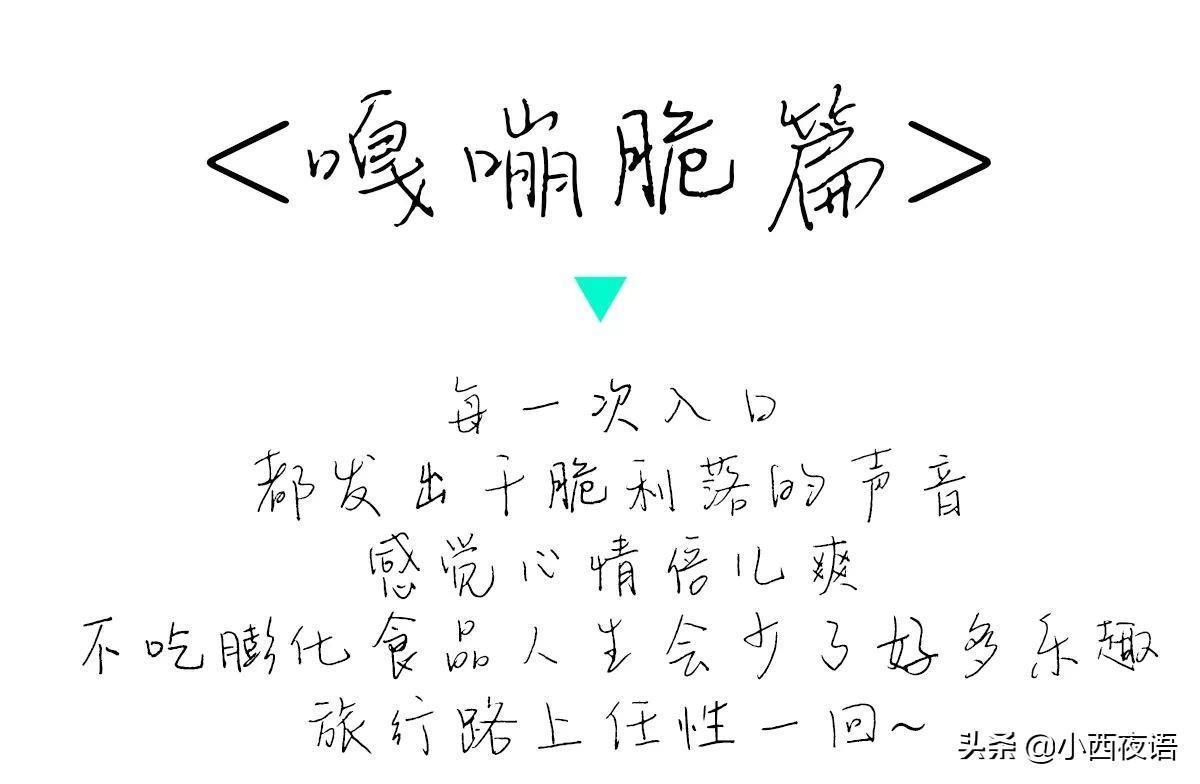 <嘎嘣脆篇>
每一次入口
都发出干脆利落的声音
感觉心情倍儿爽
不吃膨化食品人生会少了好多乐趣
旅行路上任性一回~
头条 @小西夜语